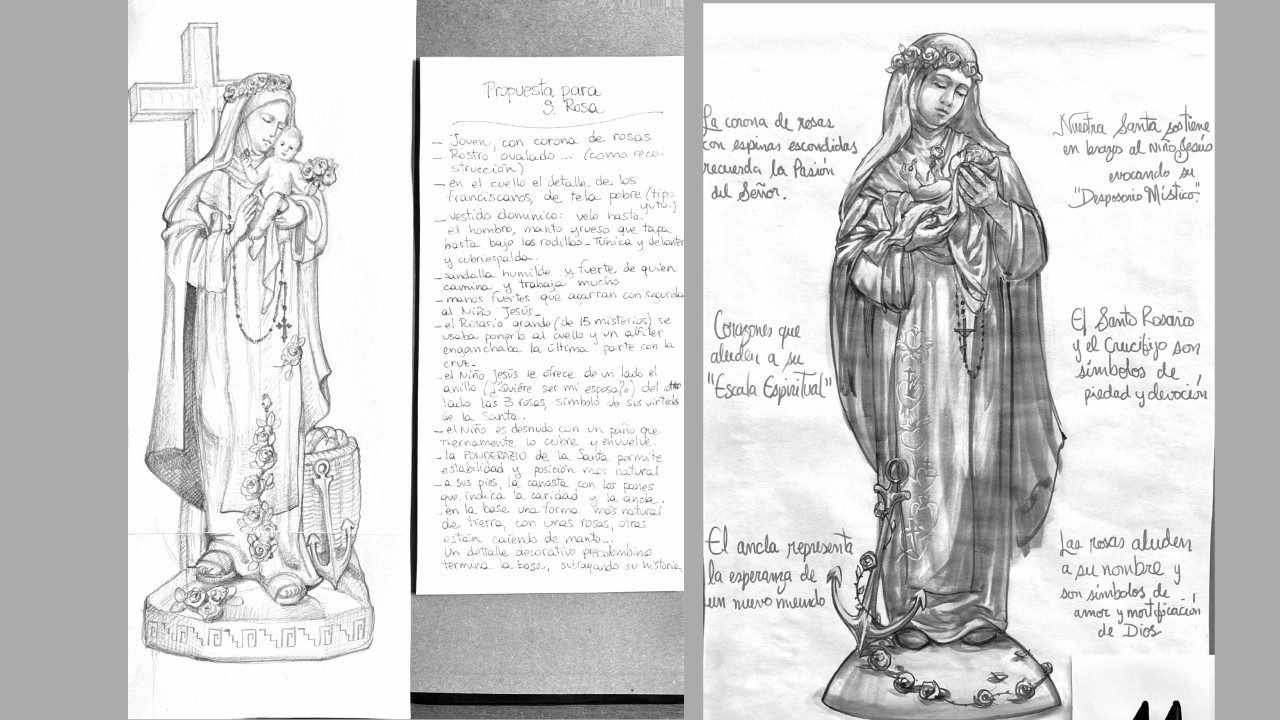 Propuesta para
S. Rosa
- Joven, con corona de rosas
- Rostro ovalado... (como reco-
strucción)
- en el cuello el detalle de los
franciscanos, de tela pobre (tipo
yute)
- vestido dominico: velo hasta
el hombro, manto grueso que tapa
hasta bajo las rodillas. Tunica y delantera
y cubriespalda.
- sandalia humilde y fuerte de quien
camina y trabaja mucho
- manos fuertes que agarran con seguridad
al Niño Jesús_
- el Rosario grande (de 15 misterios) se
usaba ponerlo al cuello y un alfiler
enganchaba la última parte con la
cruz.
- el Niño Jesús le ofrece de un lado el
anillo (¿quiere ser mi esposa?) del otro
lado las 3 rosas, símbolo de sus virtudes
de la santa.
- el Niño es desnudo con un paño que
tiernamente lo cubre y envuelve
- la de la Santa permite
estabilidad y posición más natural
- a sus pies, la canasta con los panes
que indica la caridad y la ancla.
- en la base una forma más natural
de tierra, con unas rosas, otras
están cayendo de manto...
un detalle decorativo precolombino
termina la base, subrayando su historia
La corona de rosas
con espinas escondidas
recuerda la Pasión
del Señor.
Nuestra Santa sostiene
en brazos al Niño Jesús
evocando su
"Desposorio Místico".
Corazones que
aluden a su
"Escala Espiritual"
El Santo Rosario
y el Crucifijo son
símbolos de
piedad y devoción
El ancla representa
la esperanza de
un nuevo mundo
Las rosas aluden
a su nombre y
son símbolos de
amor y mortificación
de Dios